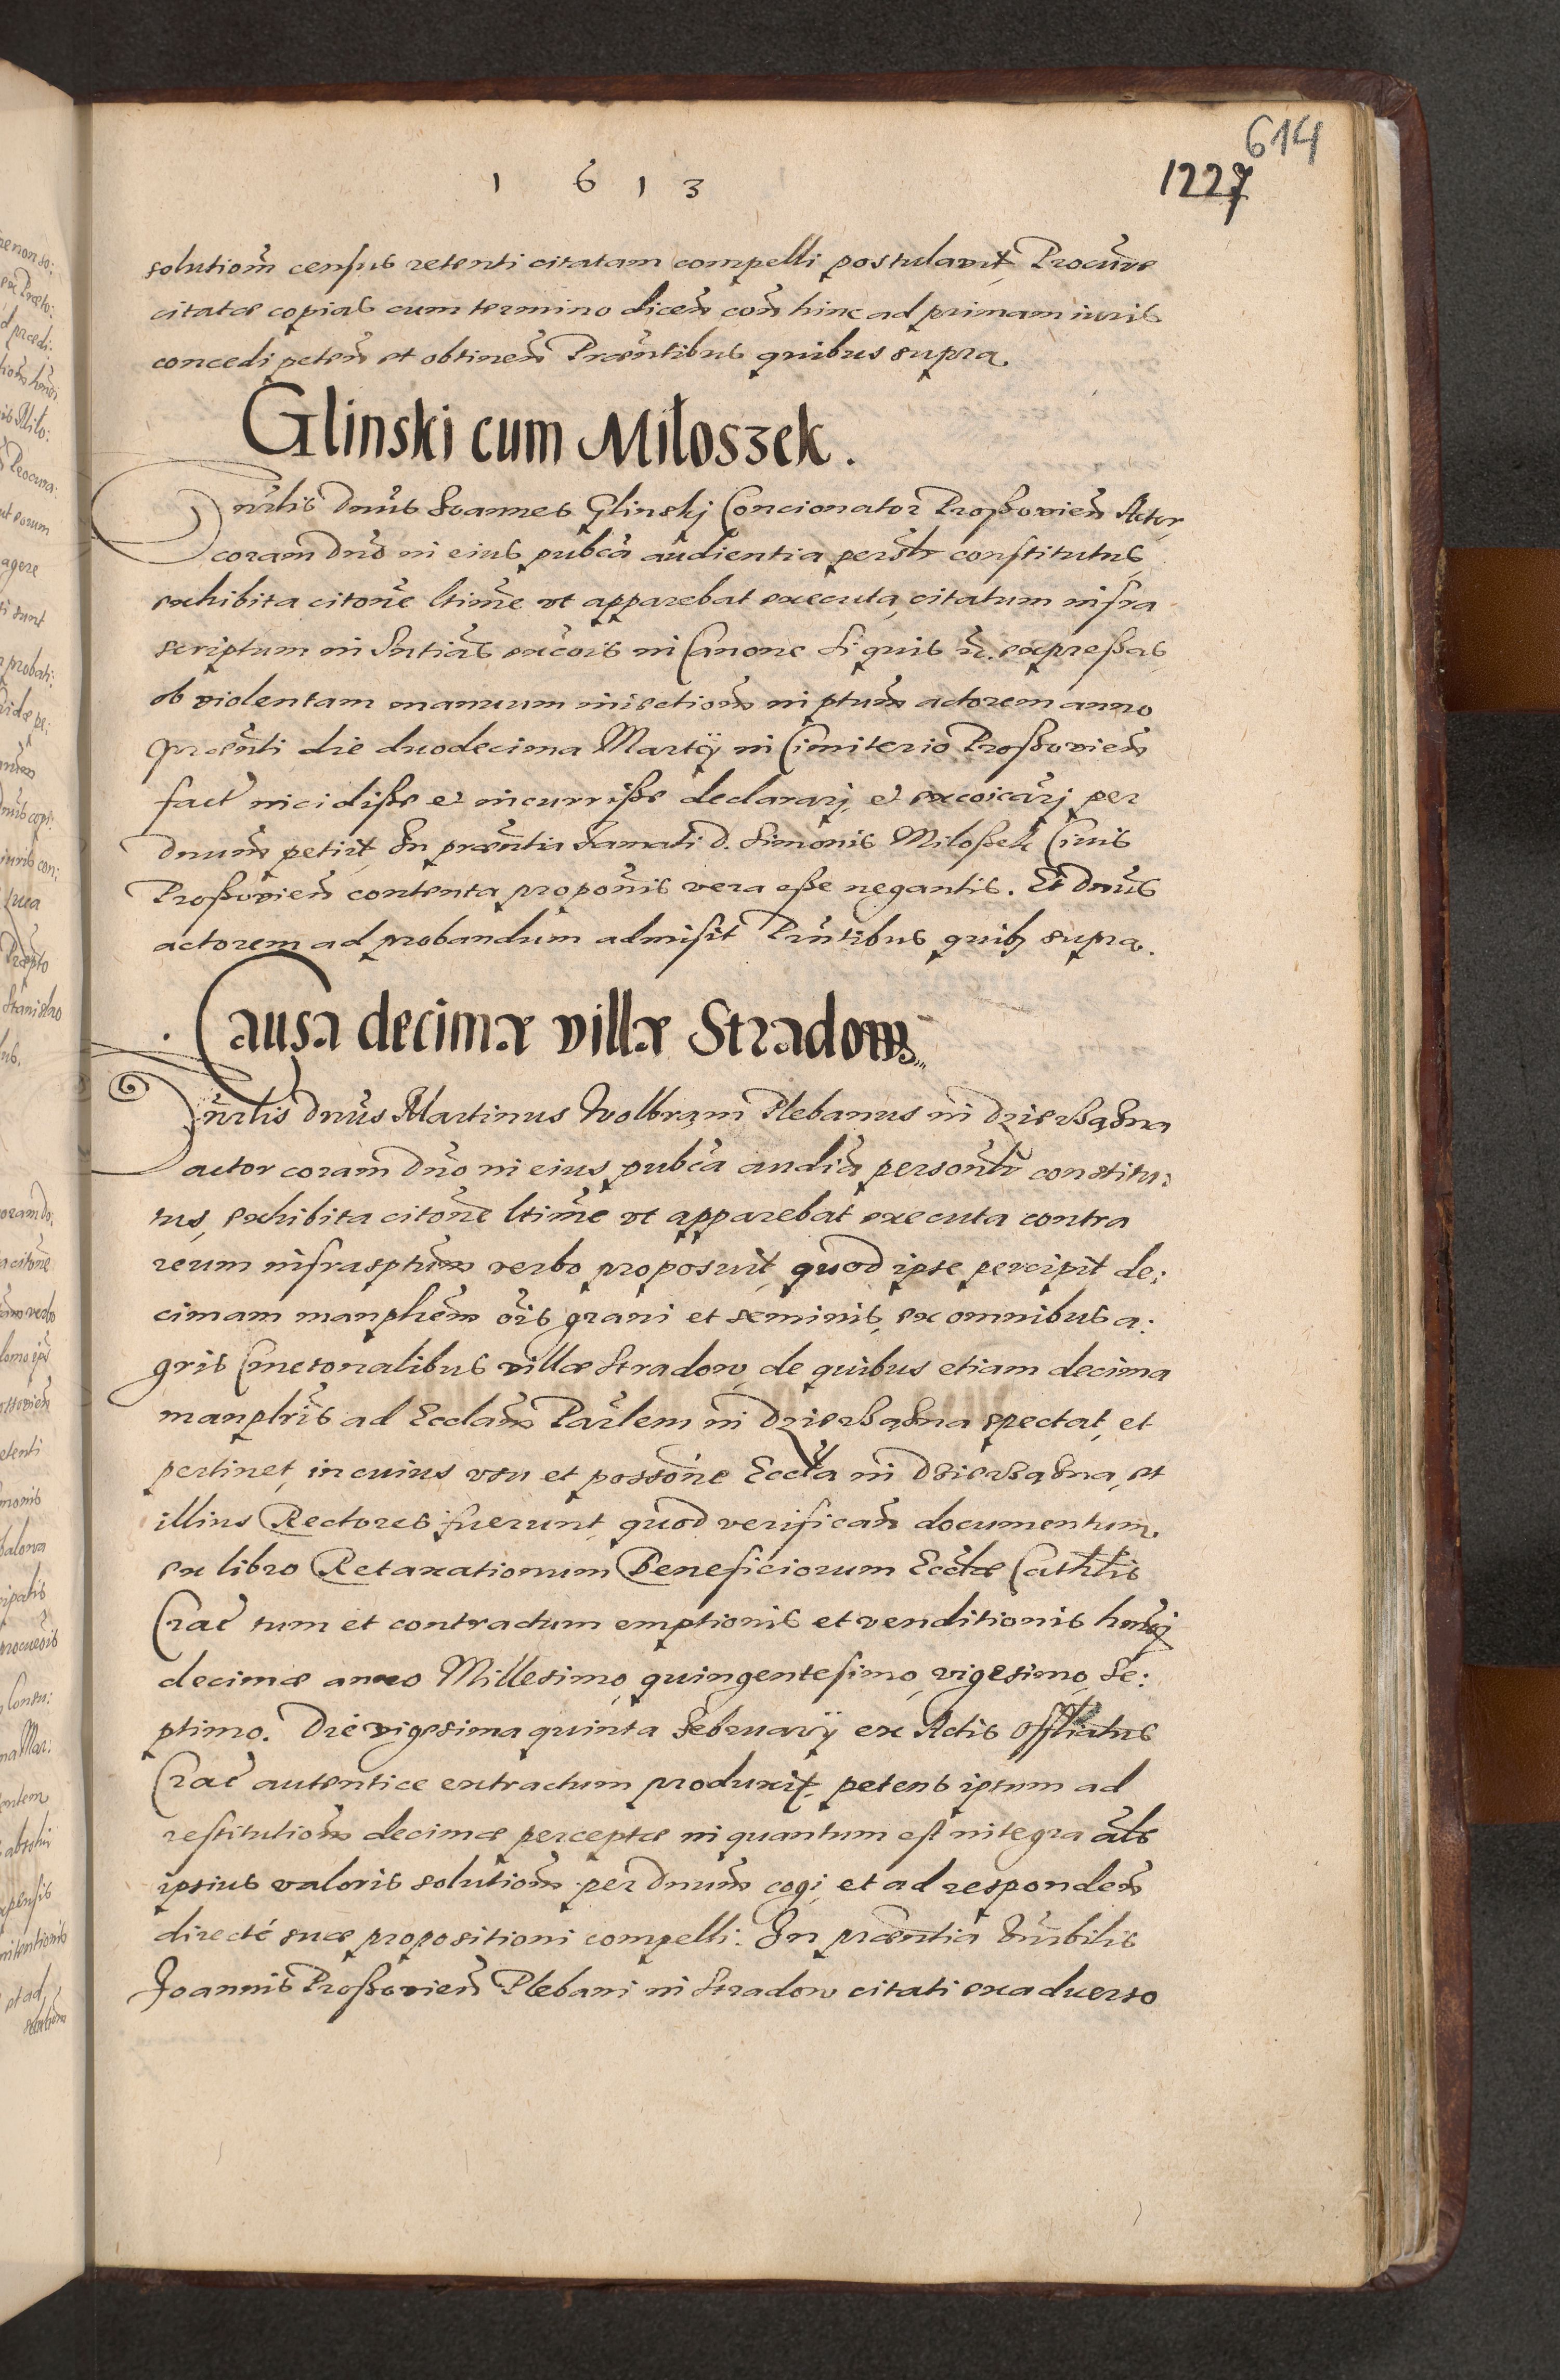 614
1 6 1 3
1227
solutiom̃ census retenti citatam compelli postulavit, Procure
citatæ copias cum termino dicen̄ con̄ hinc ad primam iuris
concedi peten̄ et obtinen̄ Præntibus quibus supra.
Glinski cum Miłoszek.
Vnrlis Dnus Ioannes Glinskj Concionator Proßovien̄ Actor,
coram Dno in eius publca audientia persolr constitutus,
exhibita citone ltime ut apparebat executa, citatum infra
scriptum in Sntias excois in Canone Si quis &c. expreßas,
ob violentam manuum iniectiom̃ in ptum actorem anno
præsenti die duodecima Martÿ in Cimiterio Proßovien̄
fact incidiße et incurriße declararj, et excoicarj per
Dnum petiit, In præntia Famati D. Simonis Miloßek Civis
Proßovien̄ contenta proponis vera eße negantis. Et Dnus
actorem ad probandum admisit Prntibus quib3 supra.
Causa decimæ villæ Stradow
Vnrlis Dnus Martinus Wolbram Plebanus in Dzierßążna
actor coram Dno in eius publca audia personlr constitu:
tus, exhibita citone ltime ut apparebat executa contra
reum infrasptum verbo proposuit, quod ipse percipit de:
cimam manplem̄ ois grani et seminis, ex omnibus a:
gris Cmetonalibus villæ Stradow, de quibus etiam decima
manplris ad Ecclam Parlem in Dzierßążna spectat, et
pertinet, in cuius usu et possone Eccla in Dzierßążna, et
illius Rectores fuerunt, quod verifican̄ documentum,
ex libro Retaxationum Beneficiorum Ecclæ Cathlis
Crac tum et contractum emptionis et venditionis hmoi
decimæ anno Millesimo, quingentesimo, vigesimo, Se:
ptimo. Die vigesima quinta Februarÿ ex Actis Offliatus
Crac autentice extractum produxit, petens iptum ad
restitutiom̃ decimæ perceptæ in quantum est integra als
ipsius valoris solutiom̃ per Dnum cogi, et ad responden̄
directé suæ propositioni compelli. In præntia Vnrbilis
Joannis Proßovien̄ Plebani in Stradow citati ex adverso